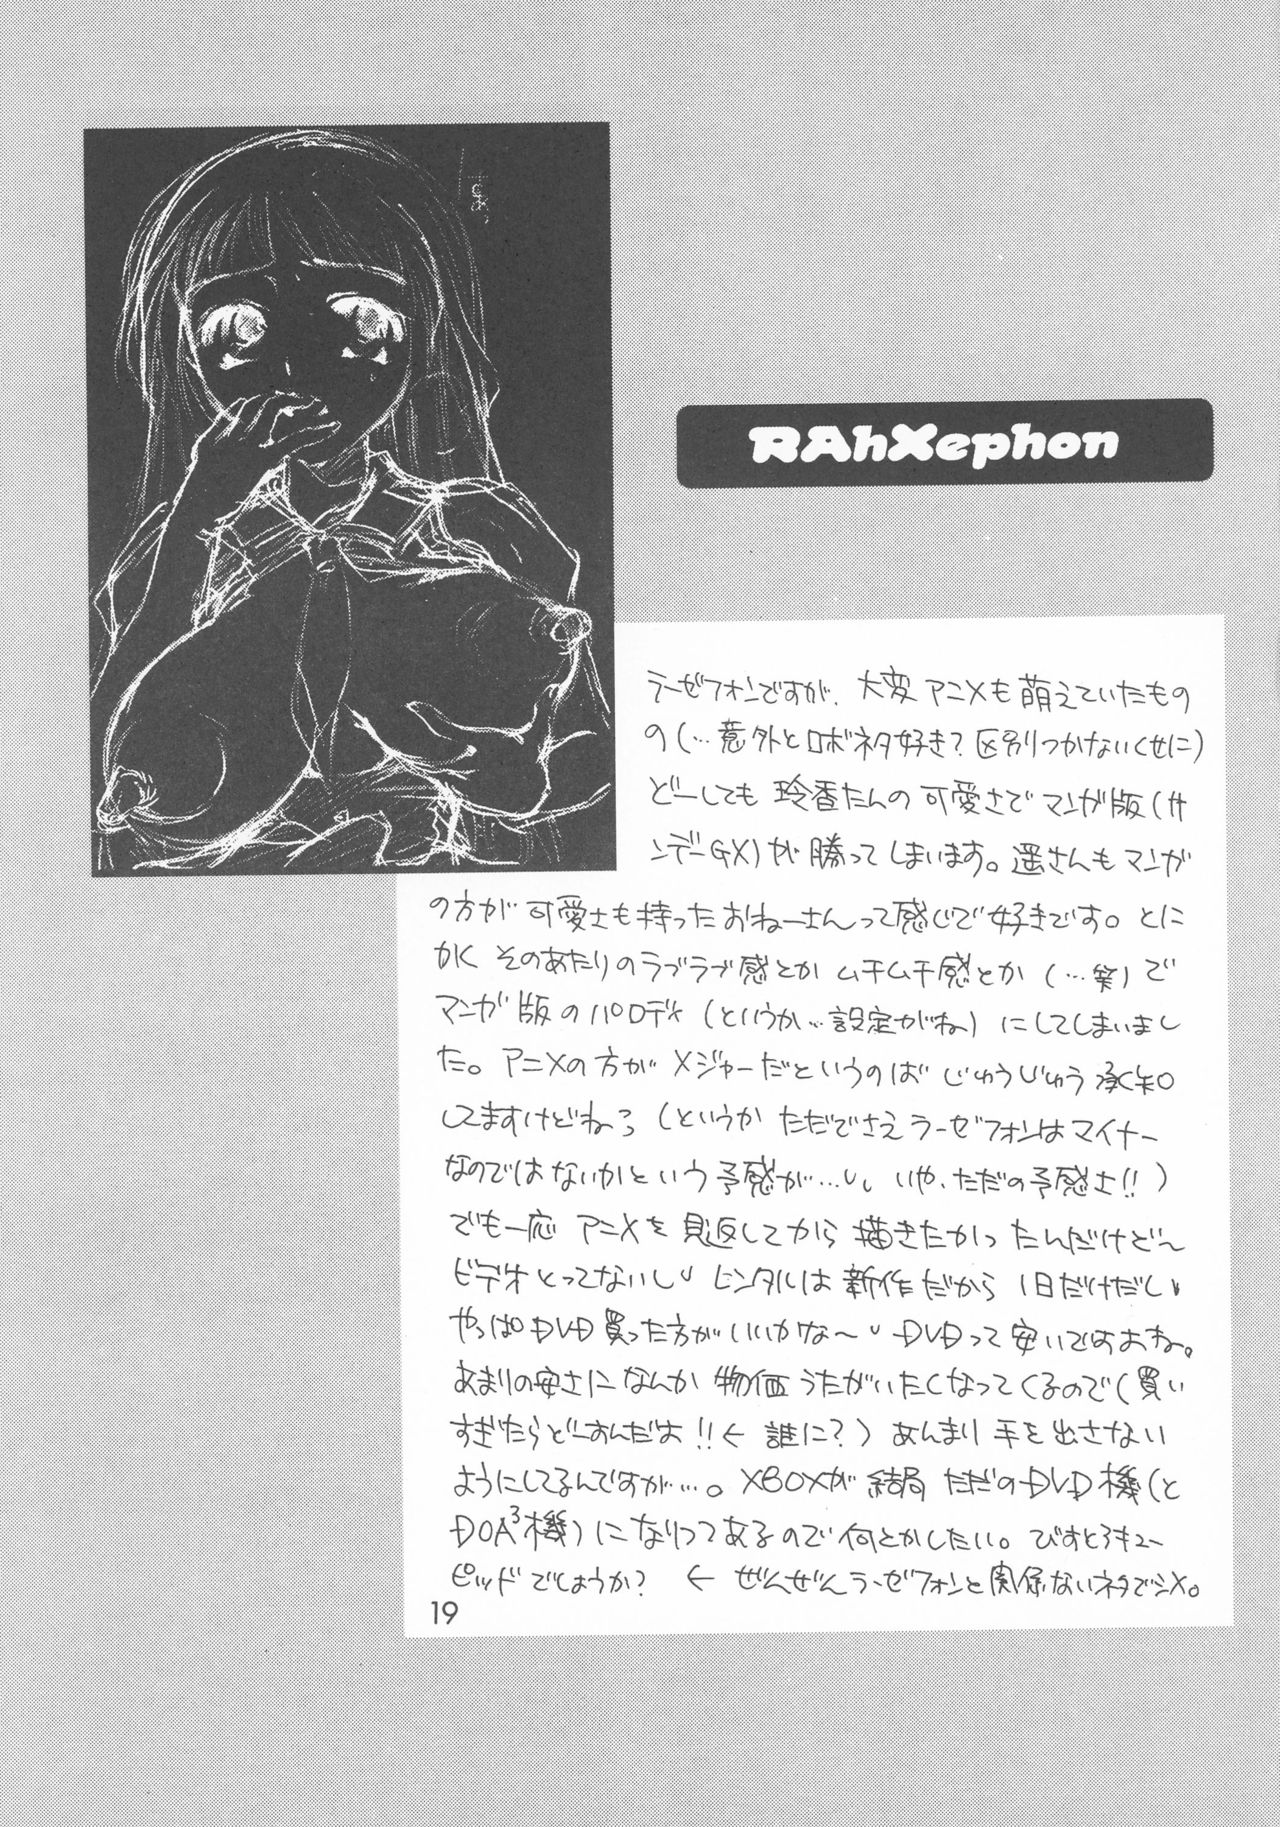 RAhXephon
ラーゼフォンですが、大変アニメも萌えていたもの
の(…意外とロボネタ好き?区別つかないくせに)
どーしても玲香たんの可愛さでマンガ版(サ
ンデーGX)が勝ってしまいます。遥さんもマンガ
の方が可愛さも持ったおねーさんって感じで好きです。とに
かくそのあたりのラブラブ感とかムチムチ感とか(…笑)で
マンガ版のパロディ(というか…設定がね)にしてしまいまし
た。アニメの方がメジャーだというのはじゅうじゅう承知
してますけどねぇ(というかただでさえラーゼフォンはマイナー
なのではないかという予感が…いや、ただの予感さ!!)
でも一応アニメを見返してから描きたかったんだけど〜
ビデオとってないしレンタルは新作だから1日だけだし
やっぱDVD買った方がいいかな〜DVDって安いですよね。
あまりの安さになんか物価うたがいたくなってくるので(買い
すぎたらどーすんだよ!!←誰に?)あんまり手を出さない
ようにしてるんですが…。XBOXが結局ただのDVD機(と
DOA3機)になりつつあるので何とかしたい。びすとろキュー
ピッドでしょうか? ←ぜんぜんラーゼフォンと関係ないネタでシメ。
19